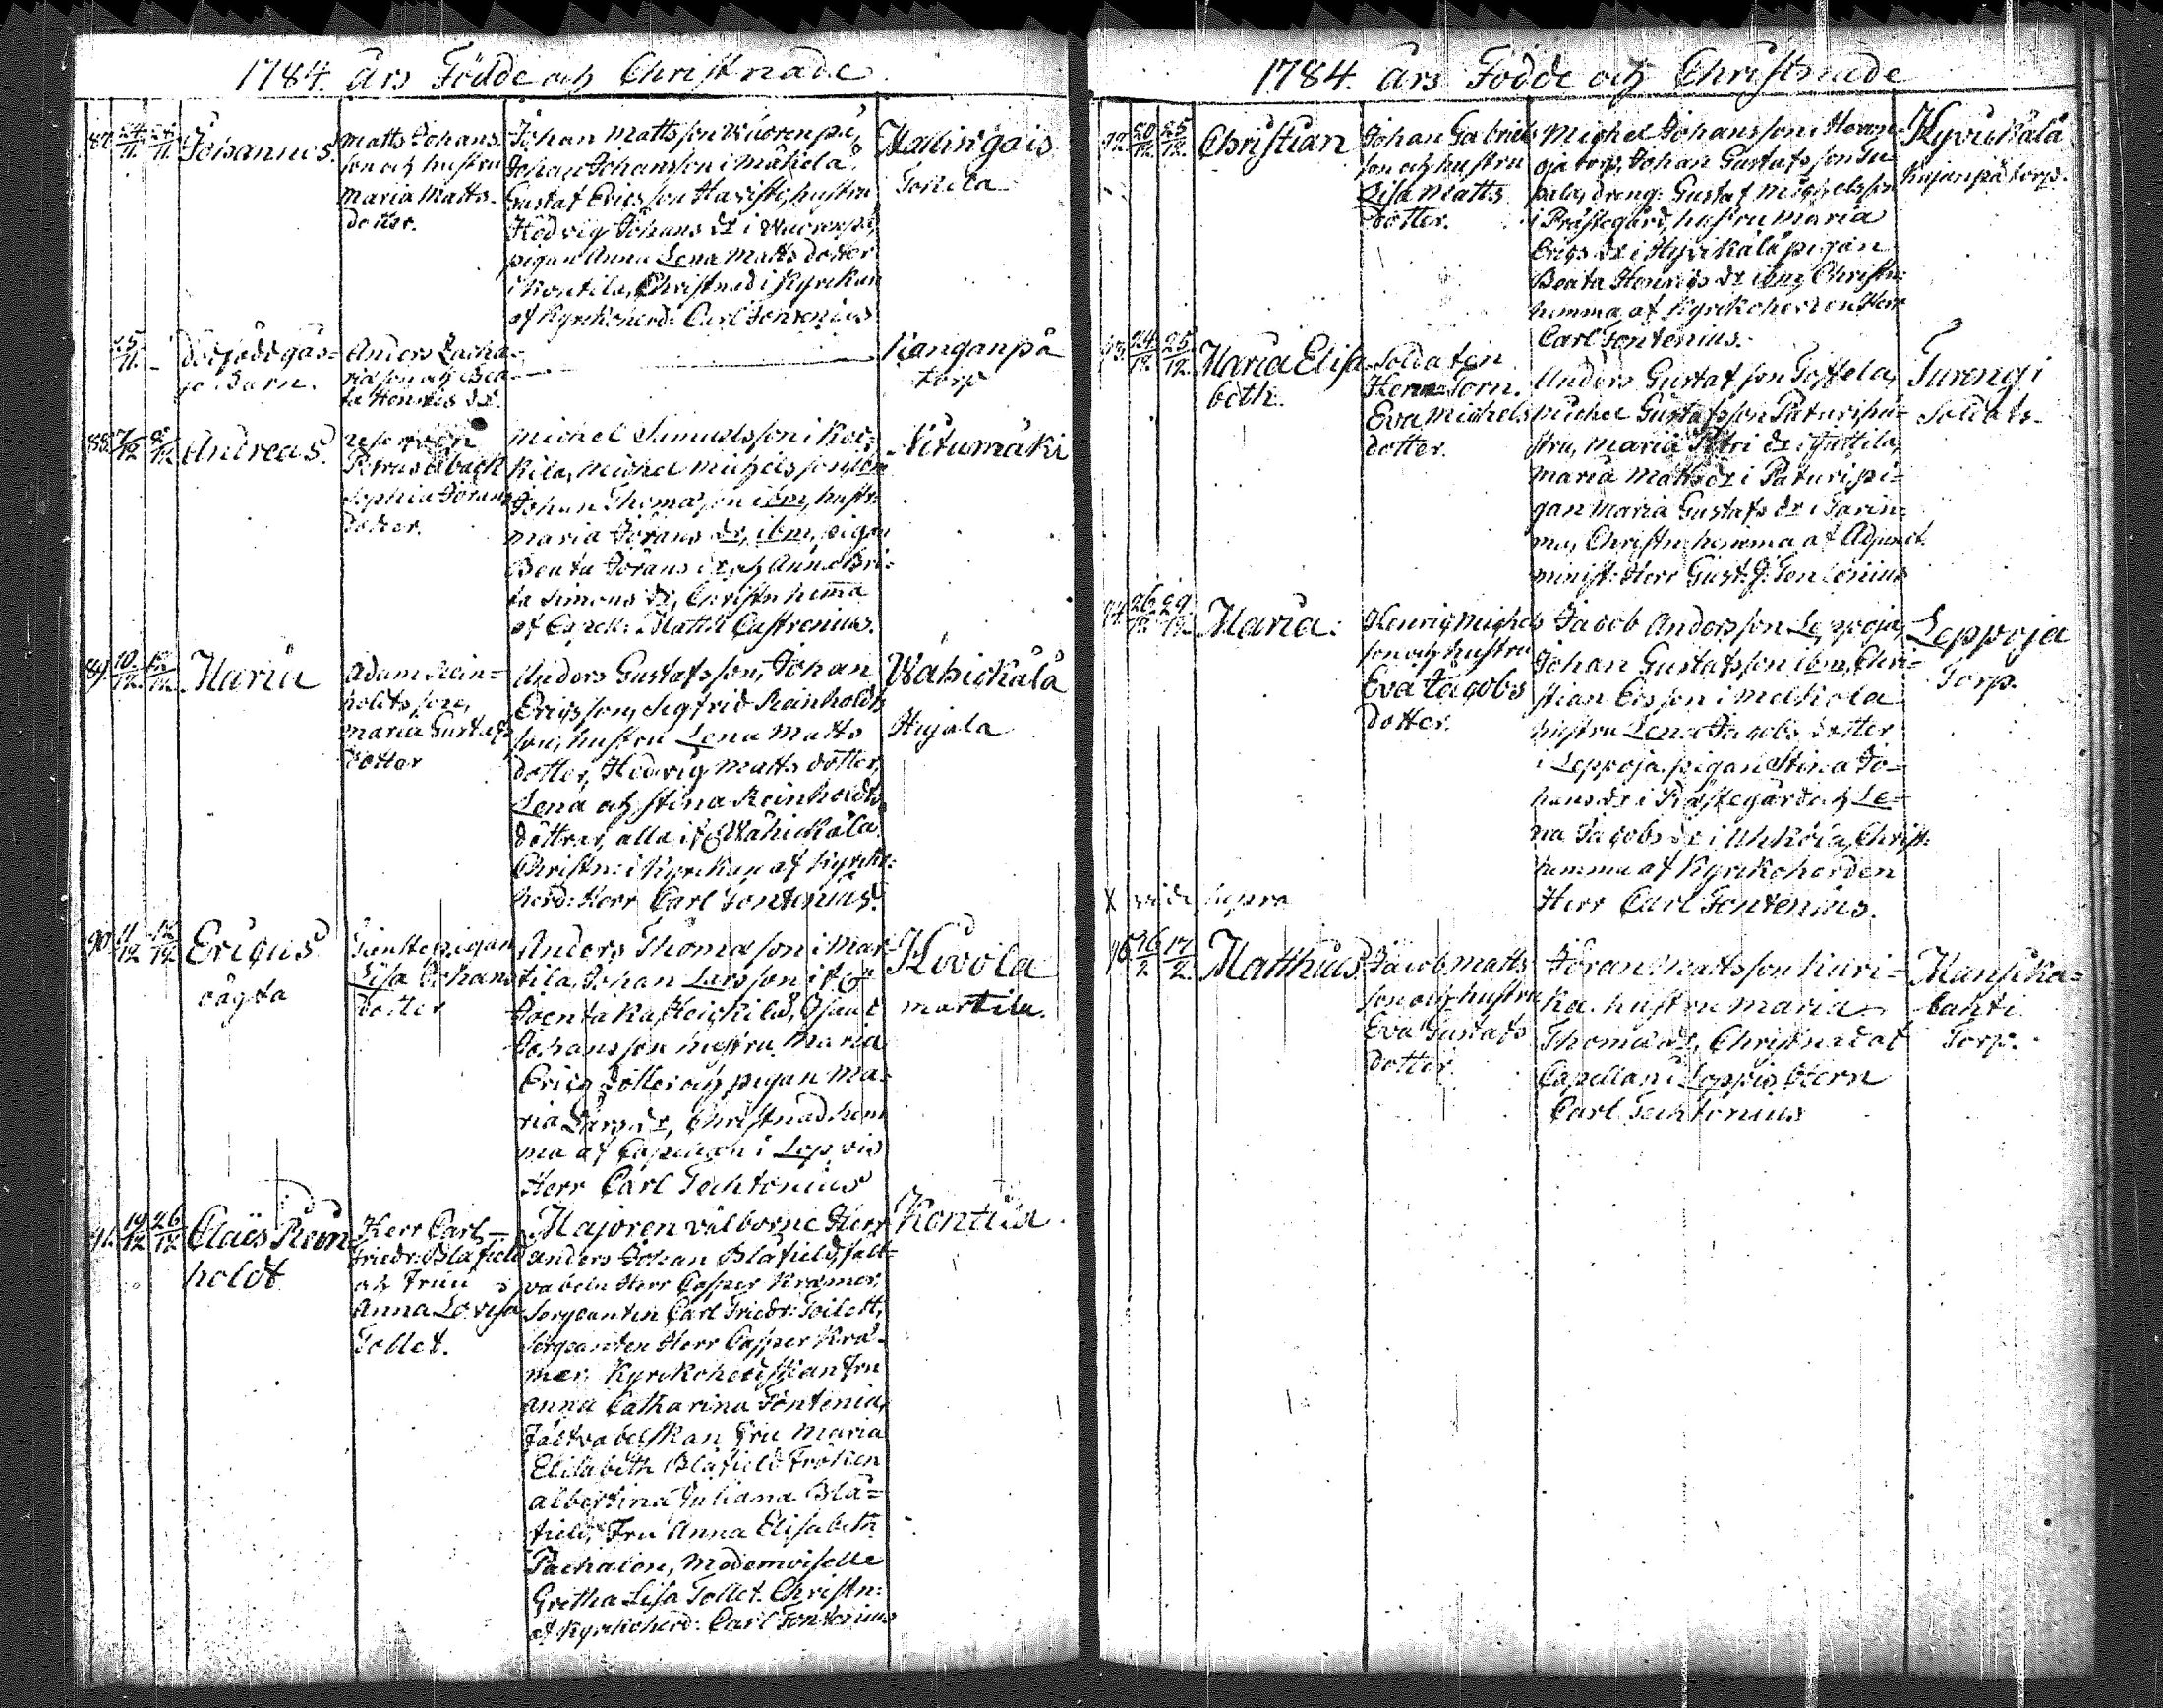 1784. års Födde och Christnade
87. 24/11. 24/11. Johannes.
Matts Johans-
son och hustru
Maria Matts-
dotter.
Johan Mattsson Wuorenpä,
Johan Johansson i Mäkelä
Gustaf Ericsson Haristi, hustru
Hedvig Johans dr i Wuorenpä,
pigan Anna Lena Matts dotter
i Kontila, Christnad i Kyrckan
af Kyrckoherd: Carl Fontenius
Hallingais
25/11. –
dödfödt gås-
se Barn.
Anders Zacha-
riæson och Bea-
ta Henrics dr.
Kanganpä
torp
88. 7/12 8/12 Andreas.
reserven
Petrus
Sophia Jörans
dotter.
Michel Simonsson i
kila, Michel Michelsson ibm
Johan Thomasson ibm, hustr:
Maria Jörans dr, ibm, pigan
Beata Jörans dr och Anna Bri-
ta Simons dr, Christn hemma
af Matth Castrenius.
Nitumäki
89. 10/12. 12/12. Maria
Adam Rein-
holdsson,
Maria Gustafs
dotter
Anders Gustafsson, Johan
Ericsson, Sigfrid Reinholds
son, hustru Lena Matts
dotter, Hedvig Matts dotter,
Lena och Stina Reinholds
döttrar, alla ifr Wähickälä
Christn: i Kyrckan af Kyrcko-
herd: Herr Carl Fontenius.
Wähickälä
Hujala
90. 11/12 12/12 Ericus
oägta
Tienstepigan
Lisa Johans
dotter
Anders Thomasson i Mar-
tila, Johan Larsson ifr
Heickilä, Isaac
Johansson hustru Maria
Erics dotter och pigan Ma-
ria Lars dr, Christnad hem
ma af Capellan i Loppis
Herr Carl Techtonius
Kovola
Martila.
91. 19/12 26/12 Claes Rein
holdt
Herr Carl
Friedr: Blåfield
och Fruu
Anna Lovisa
Tollet.
Majoren välborne Herr
Anders Johan Blåfield, fält-
vabeln Herr Casper Kræmer
Sergeanten Carl Friedr: Toilett,
Sergeanten Herr Casper Kræ-
mer Kyrckoherdskan Fru
Anna Catharina Fontenia,
Fältvabelskan Fru Maria
Elisabeth Blåfield Fröken
Albertina Juliana Blå-
field, Fru Anna Elisabeth
Pachalen, Mademoiselle
Gretha Lisa Tollet. Christn:
af Kyrckoherd: Carl Fontenius
Kontila
1784. års Födde och Christnade
92. 20/12. 25/12. Christian
Johan Gabriels
son och hustru
Lisa Matts
dotter.
Michel Johansson i
oja torp, Johan Gustafsson
dräng: Gustaf Michelsson
i Prästegård, hustru Maria
Erics dr i Hyvikälä pigan
Beata Henrics dr ibm, Christn:
hemma af Kyrckoherden Herr
Carl Fontenius.
Hyvikälä
torp.
93. 24/12. 25/12. Maria Elisa
beth.
Soldaten
Torn.
Eva Michels
dotter.
Anders Gustafsson
Michel Gustafsson Paturi, hu-
stru, Maria Petri dr i
Maria Matts dr i Paturi, pi-
gan Maria Gustafs dr i Tarin-
ma, Christn: hemma af Adjunct.
minist: Herr Gust: J: Fontenius
Turengi
Soldats-
94. 26/12. 29/12. Maria.
Henric Michels
son och hustru
Eva Jacobs
dotter.
Jacob Andersson Leppoja,
Johan Gustafsson ibm, Chri-
stian i Melkola
hustru Lena Jacobs dotter
i Leppoja, pigan Stina Jo-
hans dr i Prästegård och Le-
na Jacobs dr i Christ:
hemma af Kyrckoherden
Herr Carl Fontenius.
Leppoja
Torp.
X vide supra
95. 16/2 17/2. Matthias.
Jacob Matts
son och hustru
Eva Gustafs
dotter.
Jöran Mattsson
hustru Maria
Thomæ dr, Christnad af
Capellan i Loppis Herrn
Carl Techtonius
Mansika-
lahti
Torp.